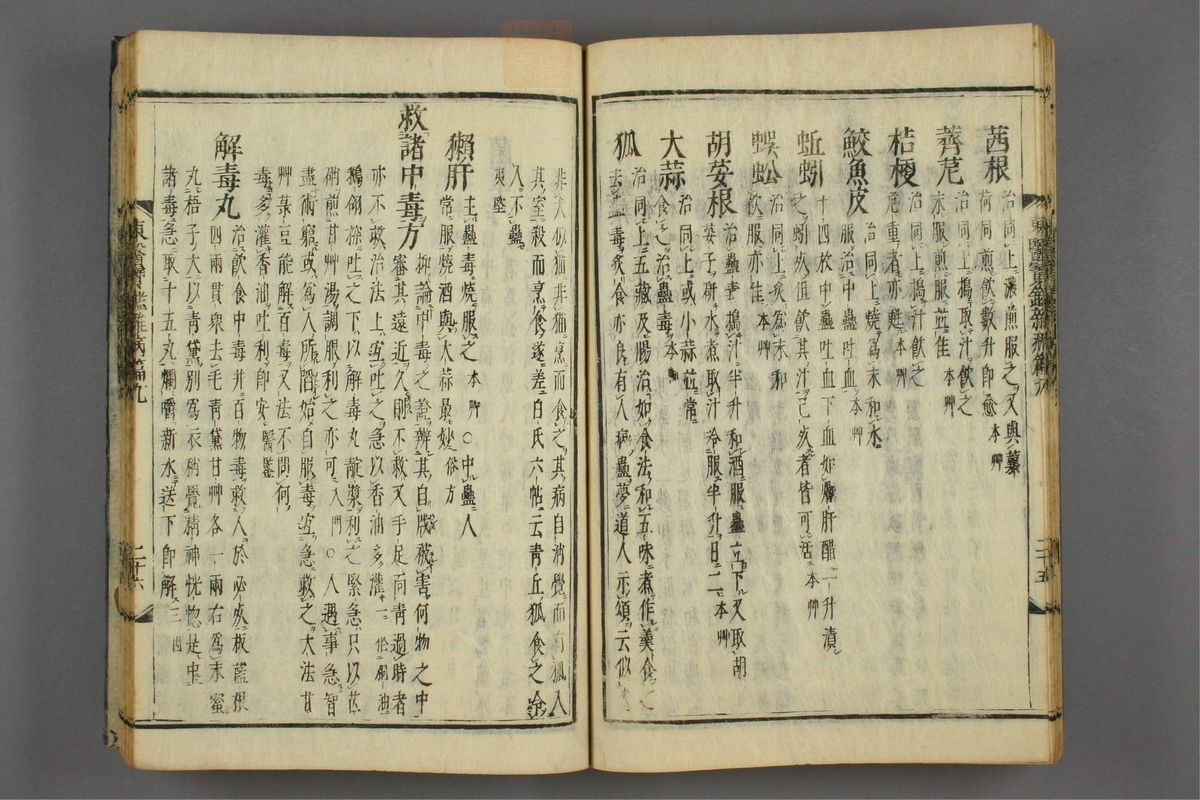 茜根
治同上濃煎服之又與蘘
荷同煎飲數升即愈 本艸
薺苨
治同上搗取汁飲之
末服煎服並佳 本艸
桔梗
治同上搗汁飲之
危重者亦甦 本艸
鮫魚皮
治同上燒爲末和水
服治中蠱吐血 本艸
蚯蚓
十四枚中蠱吐血下血如爛肝醋一升漬
之蚓死但飲其汁已死者皆可活 本艸
蜈蚣
治同上炙爲末和
飲服亦佳 本艸
胡荽根
治蠱毒搗汁半升和酒服蠱立下又取胡
荽子研水煮取汁冷服半升日二 本艸
大蒜
治同上或小蒜並常
食之治蠱毒 本艸
狐
治同上五藏及腸治如食法和五味煮作羹食之
去蠱毒炙食亦良有人病蠱夢道人示頌云似
東醫寶鑑雜病篇九
二十五
非犬似猫非猫烹而食之其病自消覺而有狐入
其室殺而烹食遂差白氏六帖云靑丘狐食之令
人不蠱
爽墜
獺肝
主蠱毒燒服之 本艸 ○中蠱人
常服燒酒與大蒜最妙 俗方
救諸中毒方
抑論中毒之證辨其自戕被害何物之中
審其遠近久則不救又手足面靑過時者
亦不救治法上宜吐之急以香油多灌 一作桐油
鵝翎探吐之下以解毒丸靛漿利之緊急只以芒
硝煎甘艸湯調服利之亦可 入門 ○人遇事急智
盡術窮或爲人所陷始自服毒宜急救之大法甘
艸菉豆能解百毒又法不問何
毒多灌香油吐利即安 醫鑑
解毒丸
治飮食中毒并百物毒救人於必死板藍根
四兩貫衆去毛靑黛甘艸各一兩右爲末蜜
丸梧子大以靑黛別爲衣稍覺精神恍惚是中
諸毒急取十五丸爛嚼新水送下即解 三因
東醫寶鑑雜病篇九
二十六